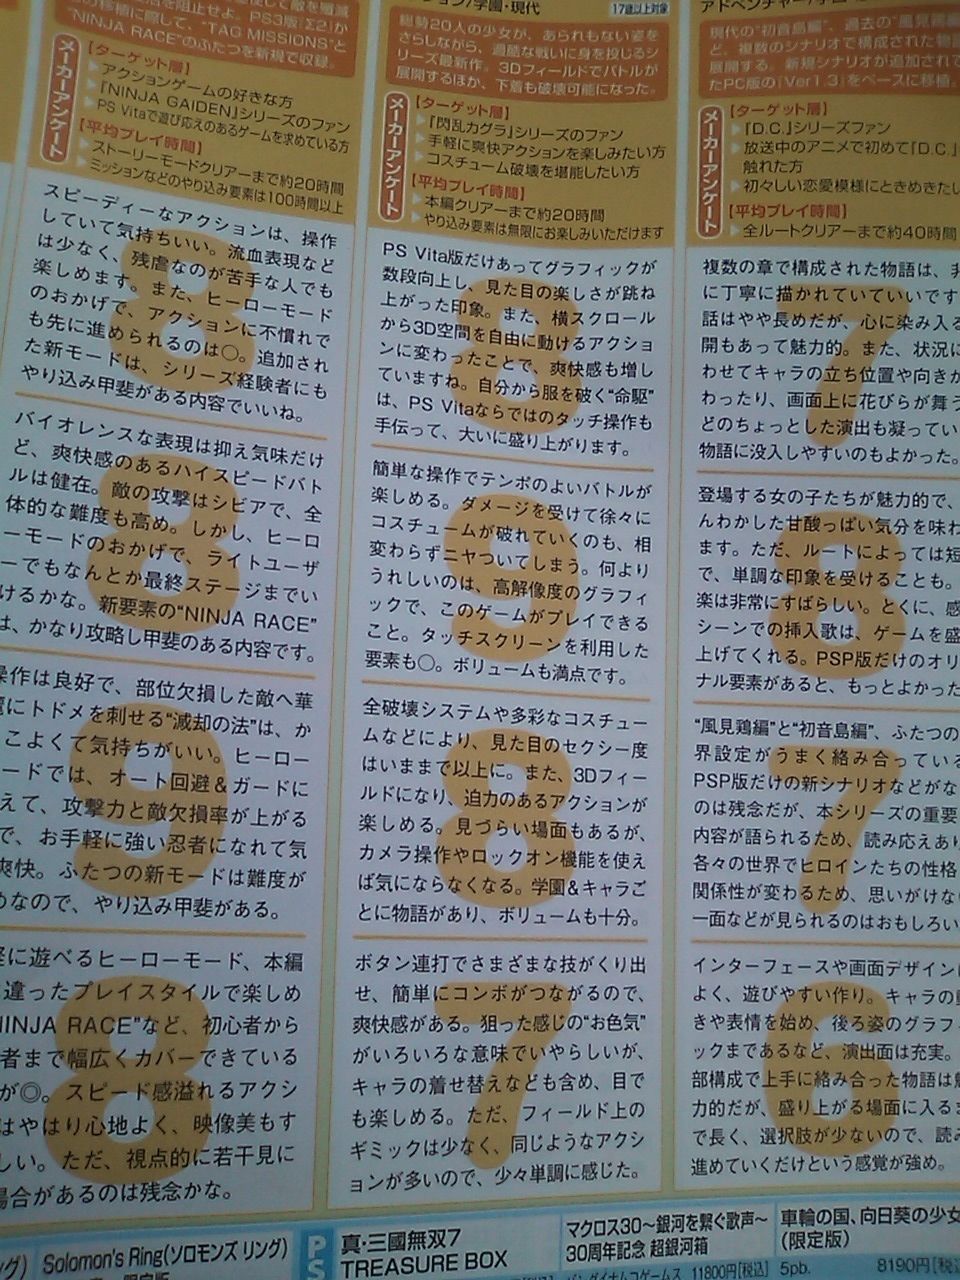 活を阻止せよ。PS3版『Σ2』か
の移植に際して、“TAG MISSIONS”と
“NINJA RACE”のふたつを新規で収録。
メーカーアンケート
【ターゲット層】
▶アクションゲームの好きな方
▶『NINJA GAIDEN』シリーズのファン
▶PS Vitaで遊び応えのあるゲームを求めている方
【平均プレイ時間】
▶ストーリーモードクリアーまで約20時間
▶ミッションなどのやり込み要素は100時間以上
8
スピーディーなアクションは、操作
していて気持ちいい。流血表現など
は少なく、残虐なのが苦手な人でも
楽しめます。また、ヒーローモード
のおかげで、アクションに不慣れで
も先に進められるのは○。追加され
た新モードは、シリーズ経験者にも
やり込み甲斐がある内容でいいね。
8
バイオレンスな表現は抑え気味だけ
ど、爽快感のあるハイスピードバト
ルは健在。敵の攻撃はシビアで、全
体的な難度も高め。しかし、ヒーロ
ーモードのおかげで、ライトユーザ
ーでもなんとか最終ステージまでい
けるかな。新要素の“NINJA RACE”
は、かなり攻略し甲斐のある内容です。
9
操作は良好で、部位欠損した敵へ華
麗にトドメを刺せる“滅却の法”は、か
っこよくて気持ちがいい。ヒーロー
モードでは、オート回避&ガードに
加えて、攻撃力と敵欠損率が上がる
ので、お手軽に強い忍者になれて気
爽快。ふたつの新モードは難度が
めなので、やり込み甲斐がある。
8
軽に遊べるヒーローモード、本編
違ったプレイスタイルで楽しめ
NINJA RACE”など、初心者から
者まで幅広くカバーできている
が◎。スピード感溢れるアクシ
はやはり心地よく、映像美もす
しい。ただ、視点的に若干見に
場合があるのは残念かな。
ション/学園・現代
17歳以上対象
総勢20人の少女が、あられもない姿を
さらしながら、過酷な戦いに身を投じるシ
リーズ最新作。3Dフィールドでバトルが
展開するほか、下着も破壊可能になった。
メーカーアンケート
【ターゲット層】
▶『閃乱カグラ』シリーズのファン
▶手軽に爽快アクションを楽しみたい方
▶コスチューム破壊を堪能したい方
【平均プレイ時間】
▶本編クリアーまで約20時間
▶やり込み要素は無限にお楽しみいただけます
8
PS Vita版だけあってグラフィックが
数段向上し、見た目の楽しさが跳ね
上がった印象。また、横スクロール
から3D空間を自由に動けるアクショ
ンに変わったことで、爽快感も増し
ていますね。自分から服を破く“命駆”
は、PS Vitaならではのタッチ操作も
手伝って、大いに盛り上がります。
9
簡単な操作でテンポのよいバトルが
楽しめる。ダメージを受けて徐々に
コスチュームが破れていくのも、相
変わらずニヤついてしまう。何より
うれしいのは、高解像度のグラフィ
ックで、このゲームがプレイできる
こと。タッチスクリーンを利用した
要素も○。ボリュームも満点です。
8
全破壊システムや多彩なコスチュー
ムなどにより、見た目のセクシー度
はいままで以上に。また、3Dフィー
ルドになり、迫力のあるアクションが
楽しめる。見づらい場面もあるが、
カメラ操作やロックオン機能を使え
ば気にならなくなる。学園&キャラご
とに物語があり、ボリュームも十分。
7
ボタン連打でさまざまな技がくり出
せ、簡単にコンボがつながるので、
爽快感がある。狙った感じの“お色気”
がいろいろな意味でいやらしいが、
キャラの着せ替えなども含め、目で
も楽しめる。ただ、フィールド上の
ギミックは少なく、同じようなアクシ
ョンが多いので、少々単調に感じた。
アドベンチャー/学園
現代の“初音島編”、過去の“風見鶏編
ど、複数のシナリオで構成された物語
展開する。新規シナリオが追加されて
たPC版の『Ver1.3』をベースに移植。
メーカーアンケート
【ターゲット層】
▶『D.C.』シリーズファン
▶放送中のアニメで初めて『D.C.』
触れた方
▶初々しい恋愛模様にときめきたい
【平均プレイ時間】
▶全ルートクリアーまで約40時間
7
複数の章で構成された物語は、非
に丁寧に描かれていていいです
話はやや長めだが、心に染み入る
開もあって魅力的。また、状況に
わせてキャラの立ち位置や向きが
わったり、画面上に花びらが舞う
どのちょっとした演出も凝ってい
物語に没入しやすいのもよかった。
8
登場する女の子たちが魅力的で、
んわかした甘酸っぱい気分を味わ
ます。ただ、ルートによっては短
で、単調な印象を受けることも。
楽は非常にすばらしい。とくに、感
シーンでの挿入歌は、ゲームを盛
上げてくれる。PSP版だけのオリ
ナル要素があると、もっとよかった
7
“風見鶏編”と“初音島編”、ふたつの
界設定がうまく絡み合っている
PSP版だけの新シナリオなどがな
のは残念だが、本シリーズの重要
内容が語られるため、読み応えあり
各々の世界でヒロインたちの性格
関係性が変わるため、思いがけない
一面などが見られるのはおもしろい
6
インターフェースや画面デザインは
よく、遊びやすい作り。キャラの動
きや表情を始め、後ろ姿のグラフィ
ックまであるなど、演出面は充実。
部構成で上手に絡み合った物語は魅
力的だが、盛り上がる場面に入るま
で長く、選択肢が少ないので、読み
進めていくだけという感覚が強め。
Solomon's Ring(ソロモンズ リング)
PS
真・三國無双7
TREASURE BOX
マクロス30～銀河を繋ぐ歌声～
30周年記念 超銀河箱
バンダイナムコゲームス 11800円[税込]
車輪の国、向日葵の少女
(限定版)
5pb. 8190円[税込]